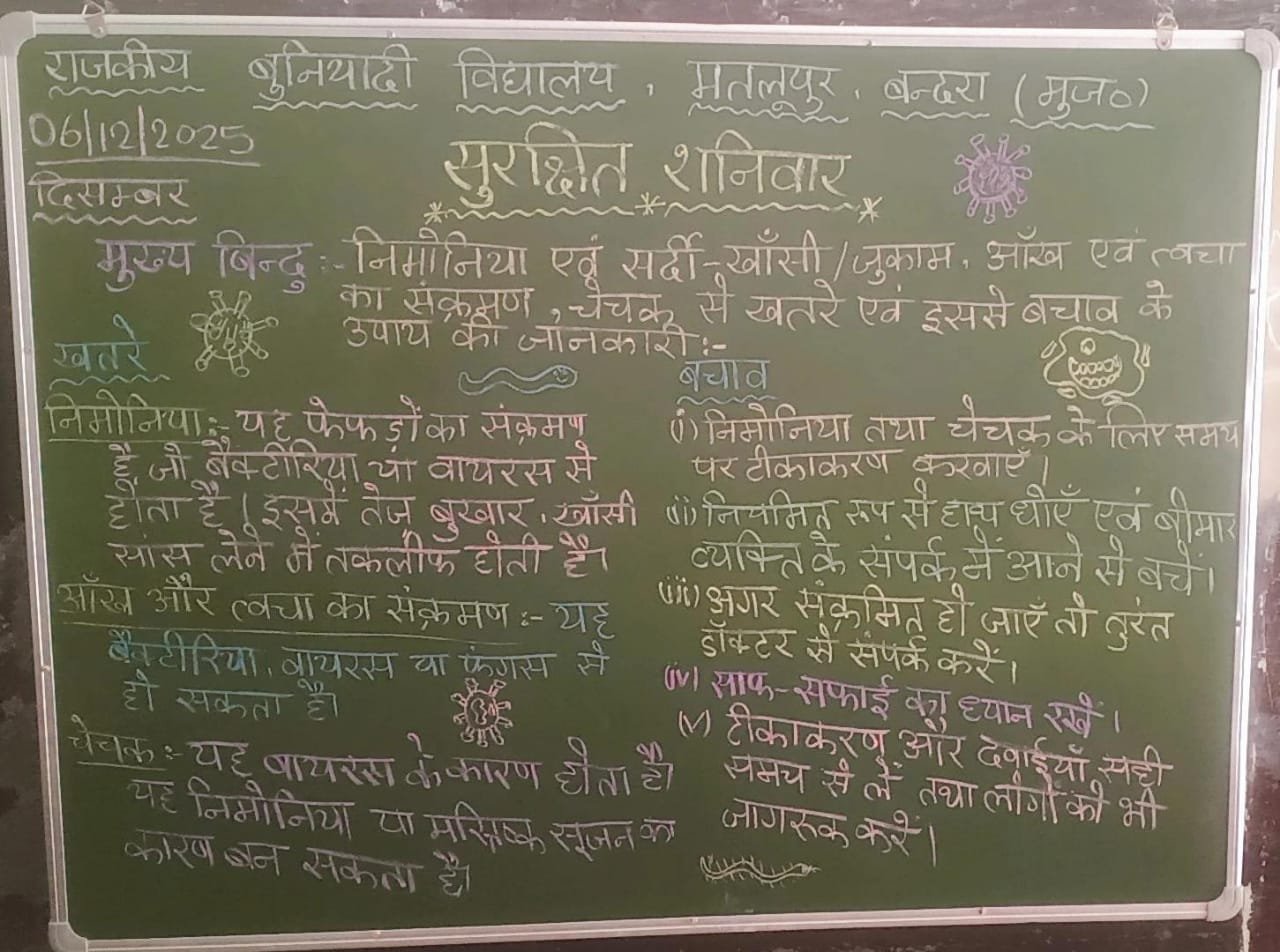 राजकीय बुनियादी विद्यालय, मतलूपुर, बन्दरा (मुज०)
06/12/2025
दिसम्बर
सुरक्षित शनिवार
मुख्य बिन्दु :- निमोनिया एवं सर्दी-खाँसी/जुकाम, आँख एवं त्वचा
का संक्रमण, चेचक से खतरे एवं इससे बचाव के
उपाय की जानकारी :-
खतरे
निमोनिया :- यह फेफड़ों का संक्रमण
है, जो बैक्टीरिया या वायरस से
होता है। इसमें तेज़ बुखार, खाँसी
सांस लेने में तकलीफ होती है।
आँख और त्वचा का संक्रमण :- यह
बैक्टीरिया, वायरस या फंगस से
हो सकता है।
चेचक :- यह वायरस के कारण होता है।
यह निमोनिया या मस्तिष्क सूजन का
कारण बन सकता है।
बचाव
(i) निमोनिया तथा चेचक के लिए समय
पर टीकाकरण करवाएँ।
(ii) नियमित रूप से हाथ धोएँ एवं बीमार
व्यक्ति के संपर्क में आने से बचें।
(iii) अगर संक्रमित हो जाएँ तो तुरंत
डॉक्टर से संपर्क करें।
(iv) साफ-सफाई का ध्यान रखें।
(v) टीकाकरण और दवाईयाँ सही
समय से लें तथा लोगों को भी
जागरूक करें।